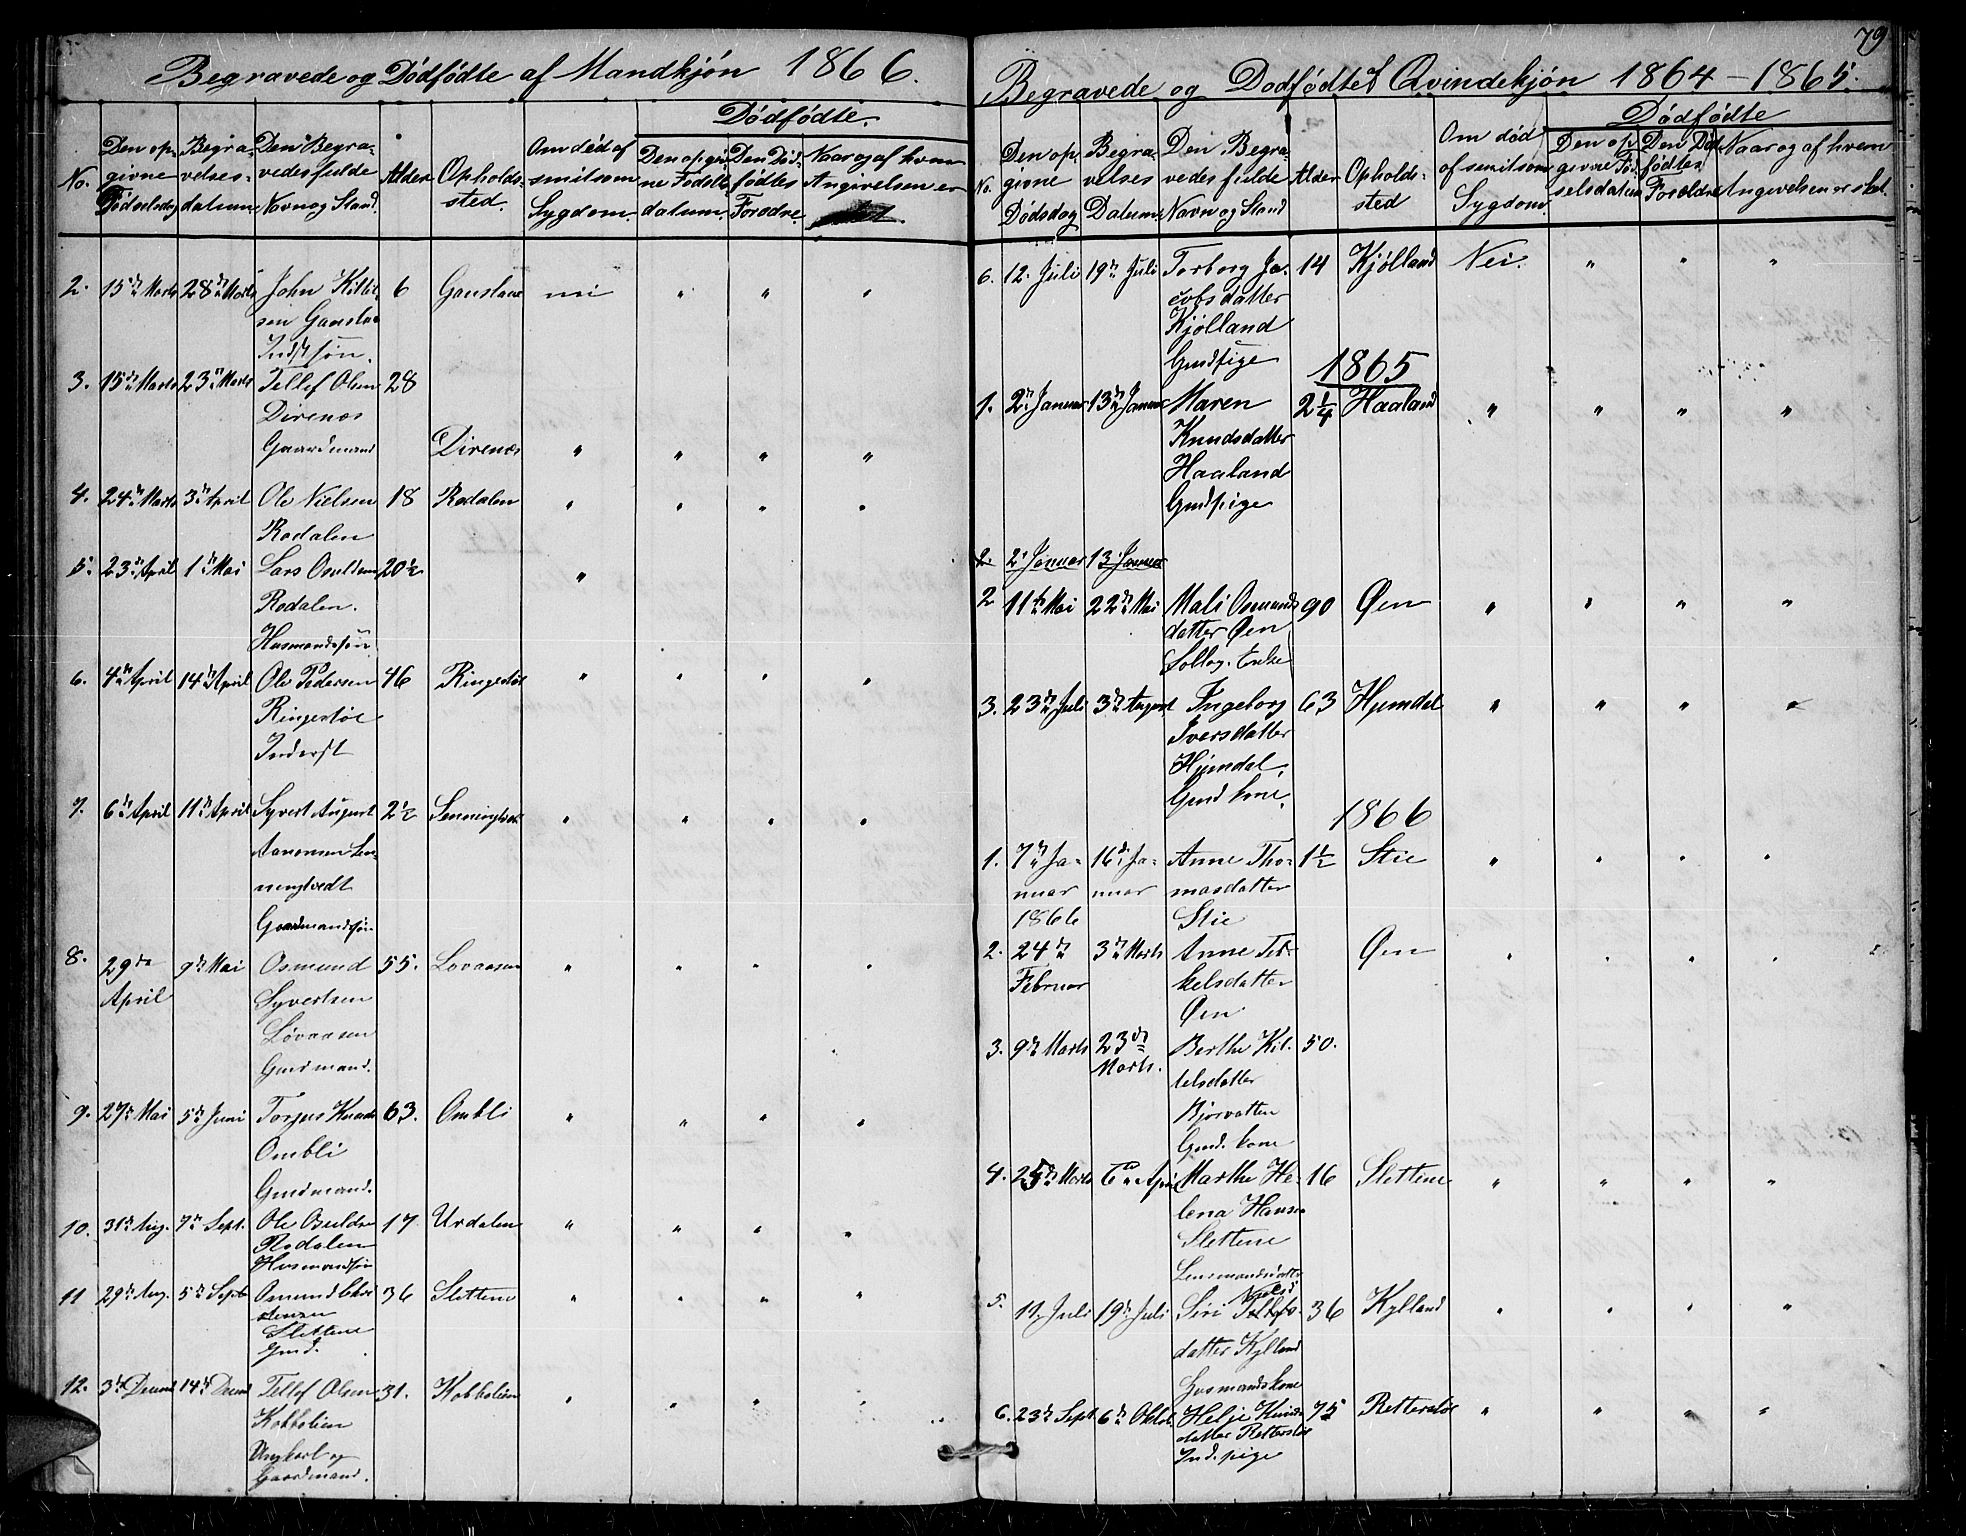 Begravede og Dødfødte af Mandkjøn 1866.
Dødfødte.
No. Den opgivne Dødsdag
Begravelsesdatum
Den Begravedes fulde Navn og Stand.
Alder
Opholdssted.
Om død af smitsom Sygdom.
Den opgivne Fødselsdatum
Den Dødfødtes Forældre
Naar og af hvem Angivelsen er
2. 15de Marts 28de Marts John 6 nei " " "
sen
Indst søn.
3. 15de Marts 23de Marts Tellef Olsen 28
Direnæs
Gaardmand Direnæs " " " "
4. 24de Marts 3de April Ole Nielsen 18 Rødalen " " " "
Rødalen
5. 23de April 1ste Mai Lars Osuldsen 20½ "
Rødalen.
Husmandssøn
6. 4de April 14de April Ole Pedersen 46 Ringestøl " " " "
Ringestøl
Inderst
7. 6te April 11te April Syvert August 2½ " " " "
Aanonsen
Gaardmandssøn
8. 29de April 9de Mai Osmund 55. Løvaasen " " " "
Syvertsen
Løvaasen
Gmdmand.
9. 27de Mai 5te Juni Torjus Knuds 63. Ombli " " " "
Ombli
Gmdmand.
10. 31te Aug. 7de Sept. Ole Osulds 17 Urdalen " " " "
Rødalen
Husmandssøn
11 29de Aug. 5te Septb Osmund 36 Slettene " " " "
Slettene
Gmd.
12. 3die Decemb 14de Decemb Tellef Olsen 31. Kobbelien " " " "
Kobbelien
Ungkarl og
Gaardmand.
79
Begravede og Dødfødte af Qvindekjøn 1864-1865.
Dødfødte
No. Den opgivne Dødsdag
Begravelses Datum
Den Begravedes fulde Navn og Stand
Alder
Opholdssted
Om død af smitsom Sygdom.
Den opgivne Fødselsdatum
Den Dødfødtes Forældre
Naar og af hvem Angivelsen er sket.
6. 12. Juli 19de Juli Torborg Ja- 14 Kjølland Nei. " " "
cobsdatter
Kjølland
Gmdpige
1865
1. 2den Januar 13de Januar Maren 2¼ Haaland " " " "
Knudsdatter
Haaland
Gmdpige
2. 2. Januar 13. Januar
2 11te Mai 22de Mai Mali Osmunds 90 Øen " " " "
datter Øen
Enke
3. 23de Juli 3die August Ingeborg 63 Hjemdal " " " "
Iversdatter
Hjemdal.
Gmd kone.
1866
1. 7de Ja- 16de Ja- Anne Tho- 1½ Stie " " " "
nuar nuar masdatter
1866 Stie
2. 24de 3die Marts Anne Ter- Øen " " " "
Februar kelsdatter
Øen
3. 9de Marts 23de Berthe Kit- 50.
Marts. telsdatter
Bjørvatten
Gmd. kone
4. 25de Marts 6te April Marthe He- 16 Slettene " " " "
lena Hans
Slettene
Lensmandsdatter
Niels
5. 11 Juli 19de Juli Siri Tellefs 36 Kylland " " " "
datter Kylland
Husmandskone
6. 23de Sept. 6te Oktob. Helje Knuds 75 Retterstøl " " " "
datter Retterstøl
Ind. pige